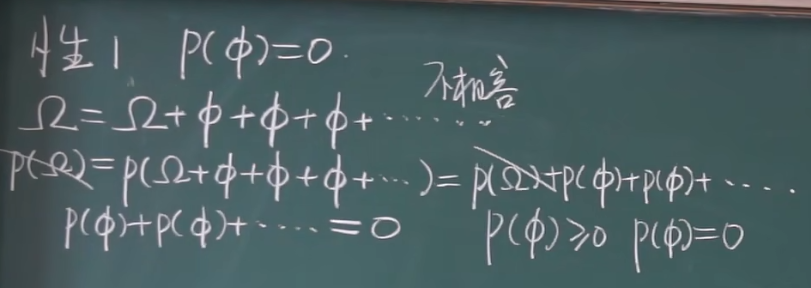 性1 P(φ)=0.
不相容
Ω=Ω+φ+φ+φ+⋯⋯
P(Ω)=P(Ω+φ+φ+φ+⋯)=P(Ω)+P(φ)+P(φ)+⋯⋯
P(φ)+P(φ)+⋯⋯=0 P(φ)≥0 P(φ)=0